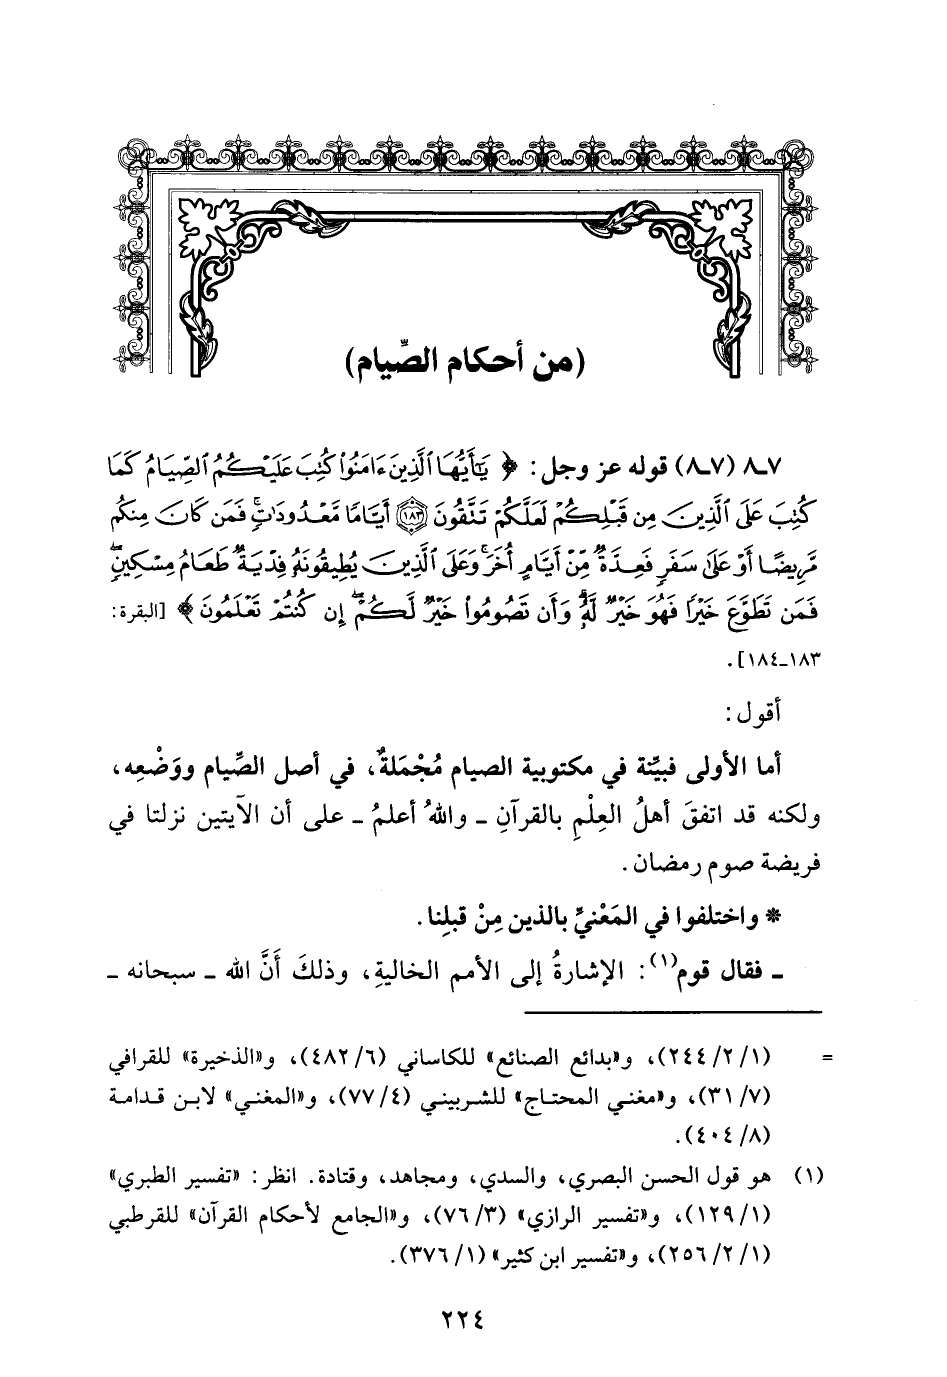 (من أحكام الصِّيام)
٧ـ٨ (٧ـ٨) قوله عز وجل: ﴿ يَٰٓأَيُّهَا ٱلَّذِينَ ءَامَنُوا۟ كُتِبَ عَلَيْكُمُ ٱلصِّيَامُ كَمَا
كُتِبَ عَلَى ٱلَّذِينَ مِن قَبْلِكُمْ لَعَلَّكُمْ تَتَّقُونَ ١٨٣ أَيَّامًا مَّعْدُودَٰتٍ ۚ فَمَن كَانَ مِنكُم
مَّرِيضًا أَوْ عَلَىٰ سَفَرٍ فَعِدَّةٌ مِّنْ أَيَّامٍ أُخَرَ ۚ وَعَلَى ٱلَّذِينَ يُطِيقُونَهُۥ فِدْيَةٌ طَعَامُ مِسْكِينٍ ۖ
فَمَن تَطَوَّعَ خَيْرًا فَهُوَ خَيْرٌ لَّهُۥ ۚ وَأَن تَصُومُوا۟ خَيْرٌ لَّكُمْ ۖ إِن كُنتُمْ تَعْلَمُونَ ﴾ [البقرة:
١٨٣ـ١٨٤].
أقول:
أما الأولى فبيِّنة في مكتوبية الصيام مُجْمَلةٌ، في أصل الصِّيام ووَضْعِه،
ولكنه قد اتفقَ أهلُ العِلْمِ بالقرآنِ ـ واللهُ أعلمُ ـ على أن الآيتين نزلتا في
فريضة صوم رمضان.
* واختلفوا في المَعْنيِّ بالذين مِنْ قبلِنا.
ـ فقال قوم(١): الإشارةُ إلى الأمم الخاليةِ، وذلكَ أَنَّ الله ـ سبحانه ـ
= (١/ ٢/ ٢٤٤)، و«بدائع الصنائع» للكاساني (٦/ ٤٨٢)، و«الذخيرة» للقرافي
(٧/ ٣١)، و«مغني المحتاج» للشربيني (٤/ ٧٧)، و«المغني» لابن قدامة
(٨/ ٤٠٤).
(١) هو قول الحسن البصري، والسدي، ومجاهد، وقتادة. انظر: «تفسير الطبري»
(١/ ١٢٩)، و«تفسير الرازي» (٣/ ٧٦)، و«الجامع لأحكام القرآن» للقرطبي
(١/ ٢/ ٢٥٦)، و«تفسير ابن كثير» (١/ ٣٧٦).
٢٢٤